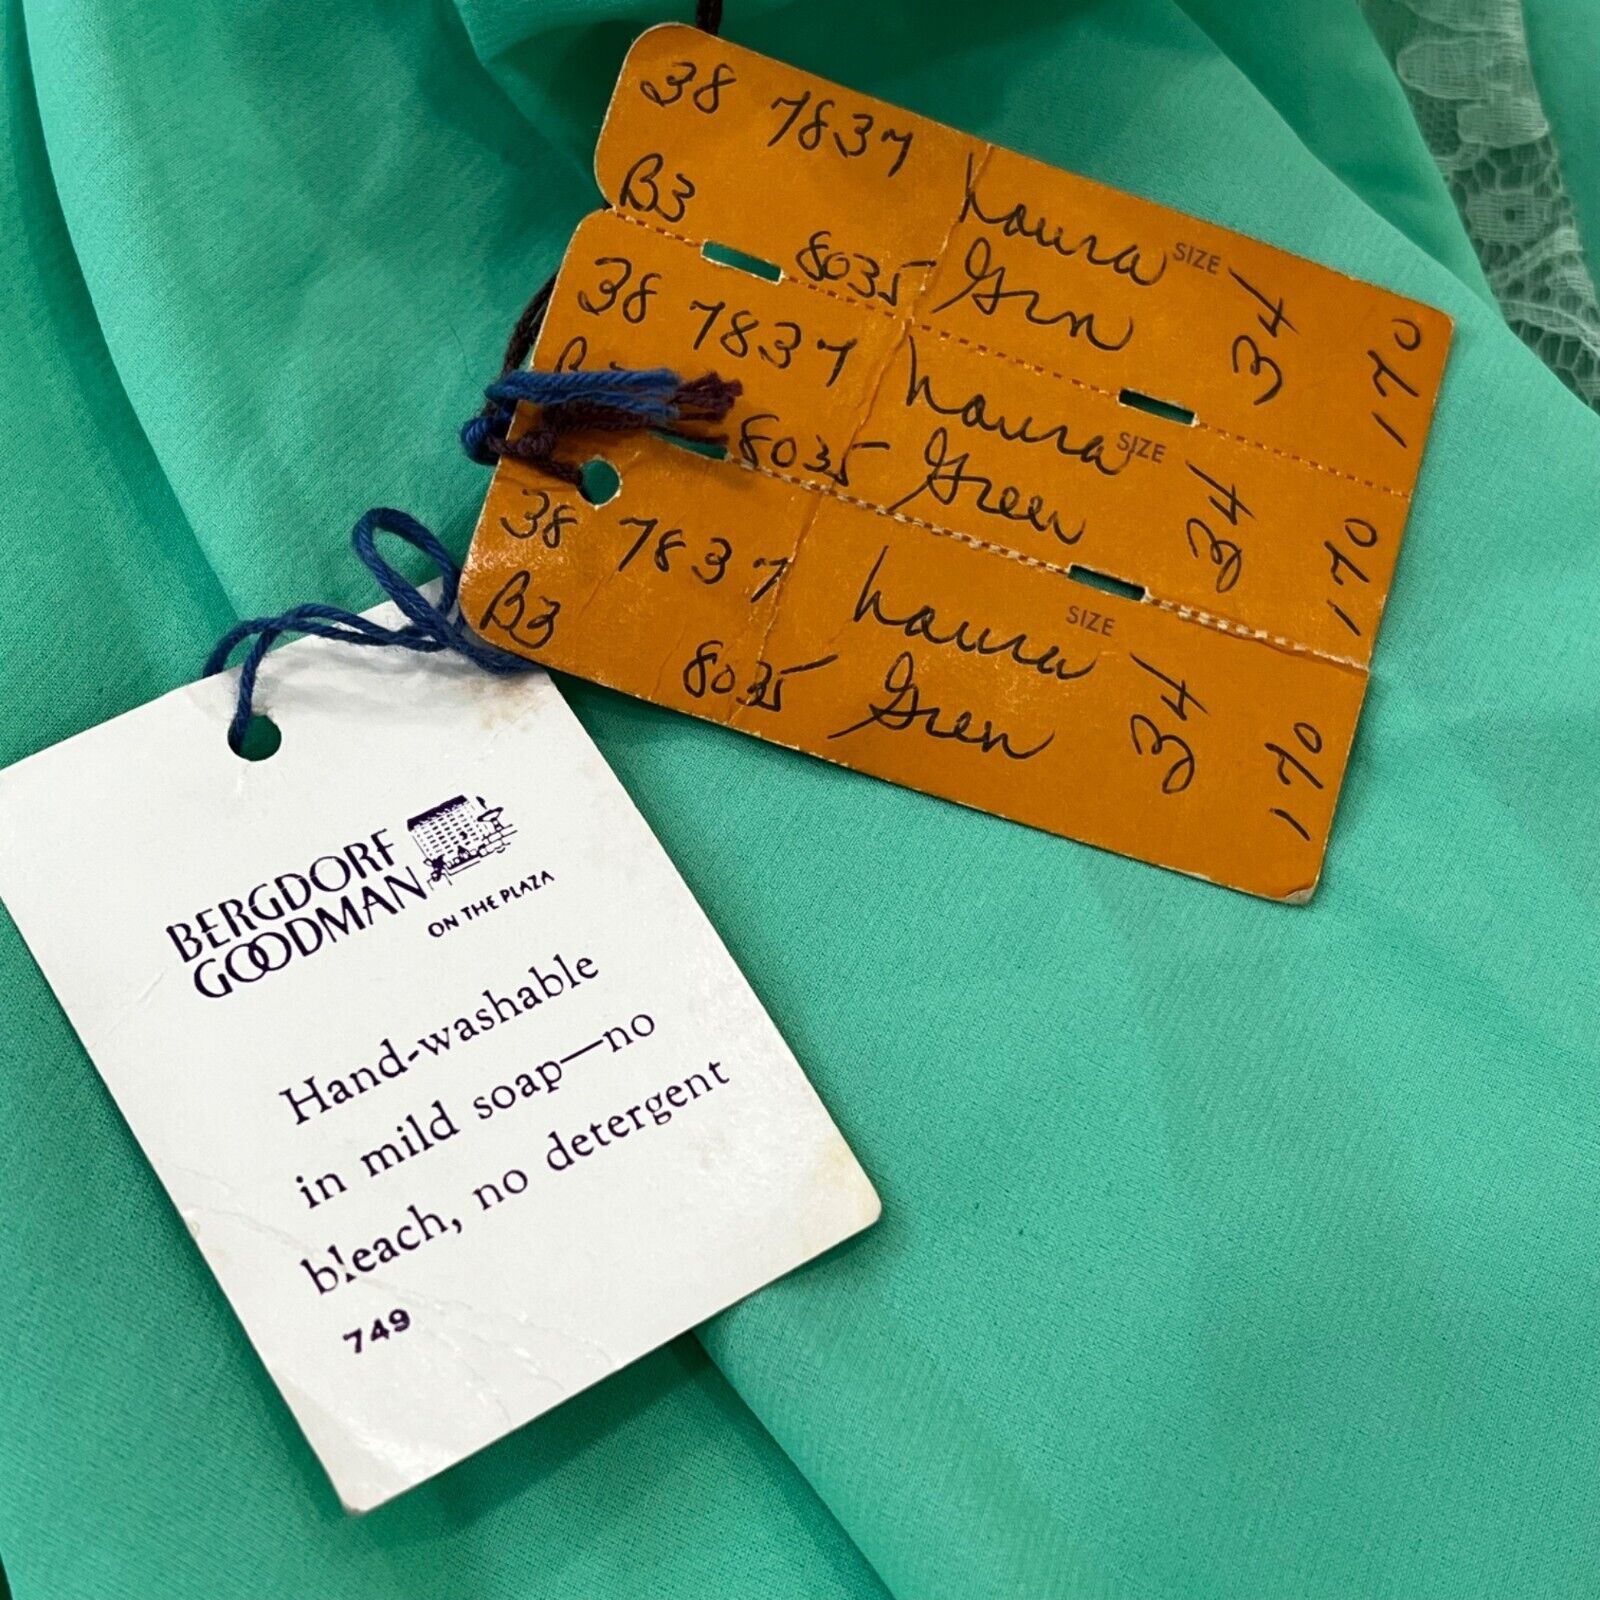 38 7837 Laura SIZE 34 170
B3 8035 Grn
38 7837 Laura SIZE 34 170
8035 Green
38 7837 Laura SIZE 34 170
B3 8035 Green
BERGDORF
GOODMAN
ON THE PLAZA
Hand-washable
in mild soap—no
bleach, no detergent
749